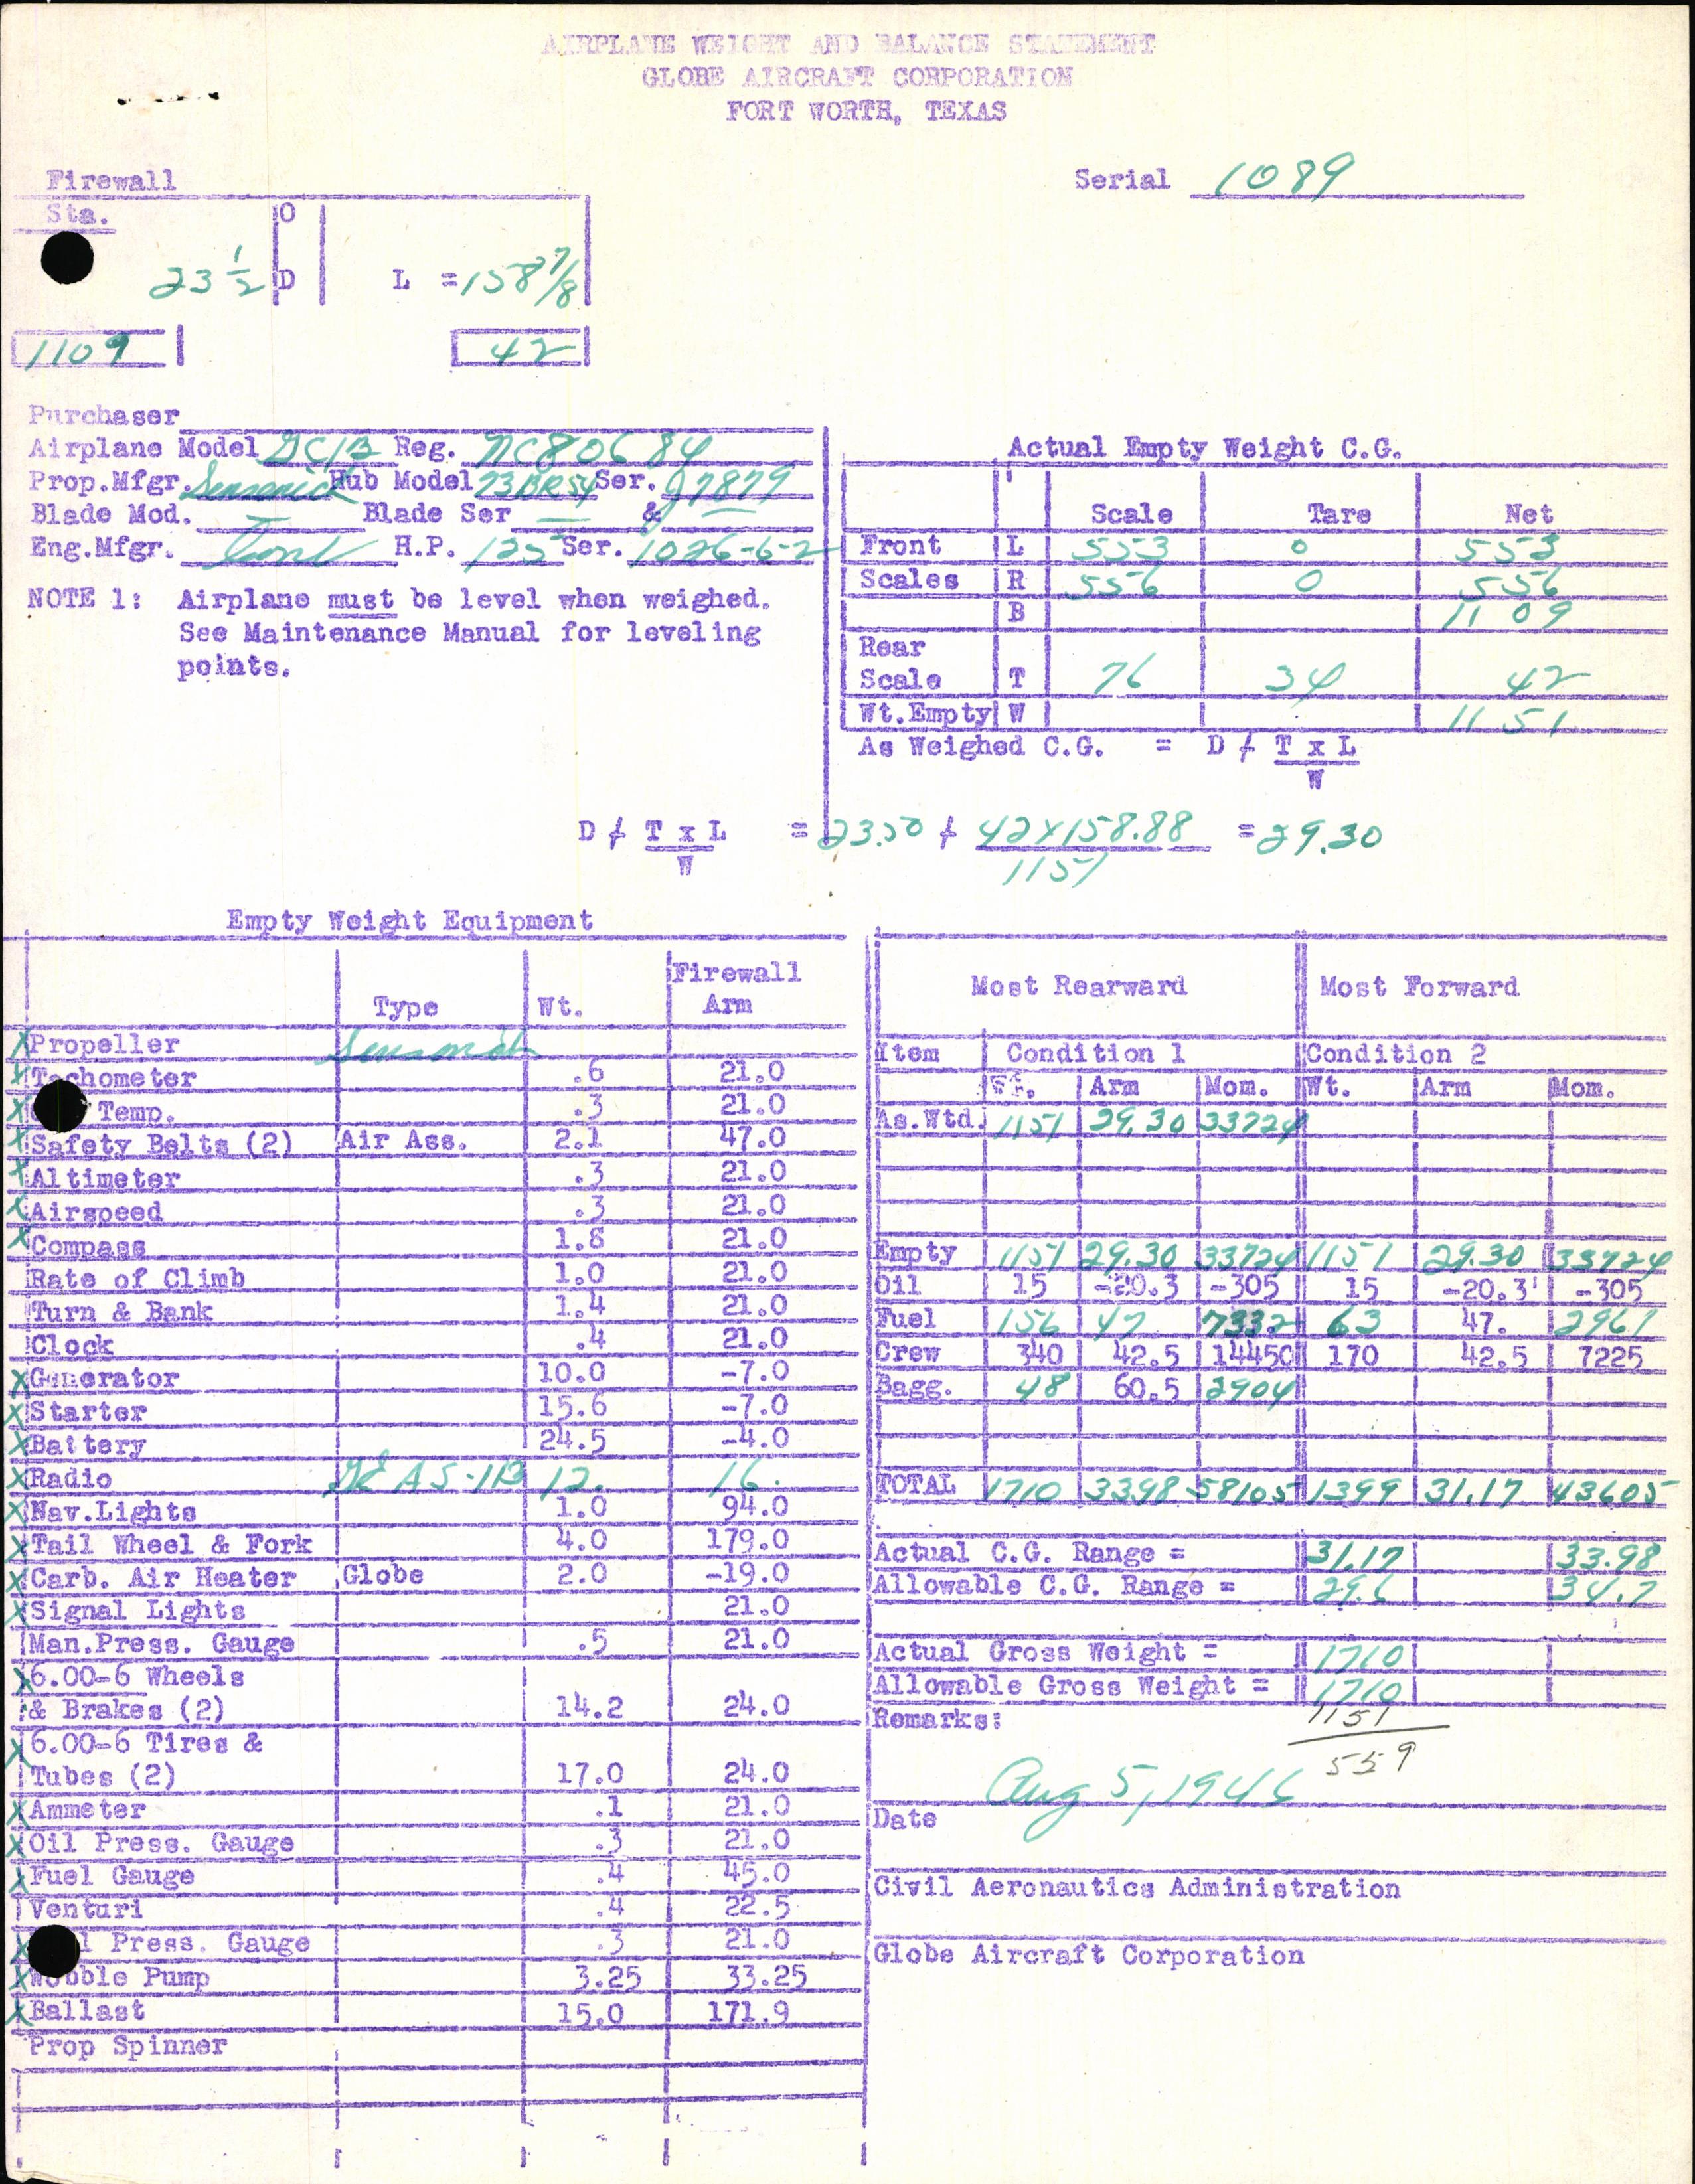 AIRPLANE WEIGHT AND BALANCE STATEMENT
GLOBE AIRCRAFT CORPORATION
FORT WORTH, TEXAS
Serial 1089
Firewall
Sta. O
23 1/2 D L = 158 7/8
1109 42
Purchaser
Airplane Model GC1B Reg. NC80684
Prop.Mfgr. Sensenich Hub Model 73BR54 Ser. 97879
Blade Mod. — Blade Ser — & —
Eng.Mfgr. Cont H.P. 125 Ser. 1026-6-2
NOTE 1: Airplane must be level when weighed.
See Maintenance Manual for leveling
points.
Actual Empty Weight C.G.
Scale Tare Net
Front L 553 0 553
Scales R 556 0 556
B 1109
Rear
Scale T 76 34 42
Wt.Empty W 1151
As Weighed C.G. = D ≠ T x L
W
D ≠ T x L = 23.50 ≠ 42x158.88 = 29.30
W 1151
Empty Weight Equipment
Type Wt. Firewall
Arm
X Propeller Sensenich
X Tachometer .6 21.0
X Temp. .3 21.0
X Safety Belts (2) Air Ass. 2.1 47.0
X Altimeter .3 21.0
X Airspeed .3 21.0
X Compass 1.8 21.0
Rate of Climb 1.0 21.0
Turn & Bank 1.4 21.0
Clock .4 21.0
X Generator 10.0 -7.0
X Starter 15.6 -7.0
X Battery 24.5 -4.0
X Radio GE AS-1B 12. 16.
X Nav.Lights 1.0 94.0
X Tail Wheel & Fork 4.0 179.0
X Carb. Air Heater Globe 2.0 -19.0
X Signal Lights 21.0
Man.Press. Gauge .5 21.0
X 6.00-6 Wheels
& Brakes (2) 14.2 24.0
X 6.00-6 Tires &
Tubes (2) 17.0 24.0
X Ammeter .1 21.0
X Oil Press. Gauge .3 21.0
X Fuel Gauge .4 45.0
Venturi .4 22.5
X l Press. Gauge .3 21.0
X Wobble Pump 3.25 33.25
X Ballast 15.0 171.9
Prop Spinner
Most Rearward Most Forward
Item Condition 1 Condition 2
Wt. Arm Mom. Wt. Arm Mom.
As.Wtd. 1151 29.30 33724
Empty 1151 29.30 33724 1151 29.30 33724
Oil 15 -20.3 -305 15 -20.3 -305
Fuel 156 47 7332 63 47. 2961
Crew 340 42.5 14450 170 42.5 7225
Bagg. 48 60.5 2904
TOTAL 1710 33.98 58105 1399 31.17 43605
Actual C.G. Range = 31.17 33.98
Allowable C.G. Range = 29.6 34.7
Actual Gross Weight = 1710
Allowable Gross Weight = 1710
Remarks: 1151
559
Aug 5, 1946
Date
Civil Aeronautics Administration
Globe Aircraft Corporation